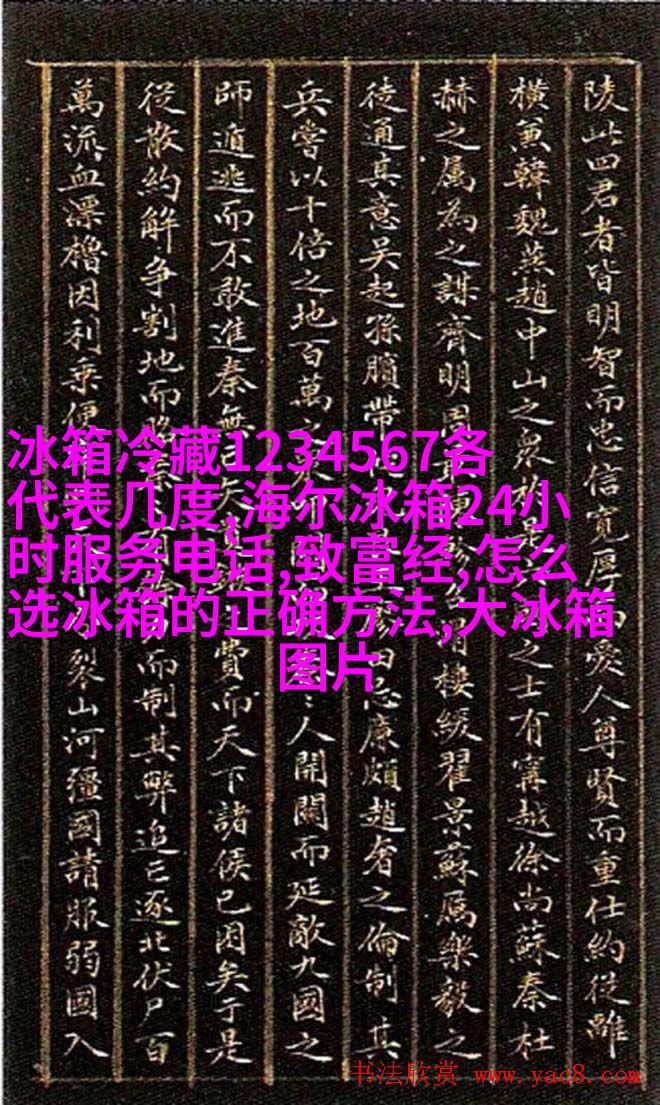 陵此四君者皆明智而忠信寬厚而愛人尊賢而重仕約從離
橫兼韓魏燕趙中山之衆之士有寗越徐尚蘇秦杜
赫之屬為之謀齊明周樓緩翟景蘇厲樂毅之
徒通其意吳起孫臏帶田忌廉頗趙奢之倫制其
兵嘗以十倍之地百萬之人開關而延敵九國之
師遁逃而不敢進秦無費而天下諸侯已困矣于是
從散約解爭割地而而制其弊追亡逐北伏尸百
萬流血漂櫓因利乘便裂山河彊國請服弱國入
冰箱冷藏1234567各
代表几度,海尔冰箱24小
时服务电话,致富经,怎么
选冰箱的正确方法,大冰箱
图片
书法欣赏 www.yac8.com